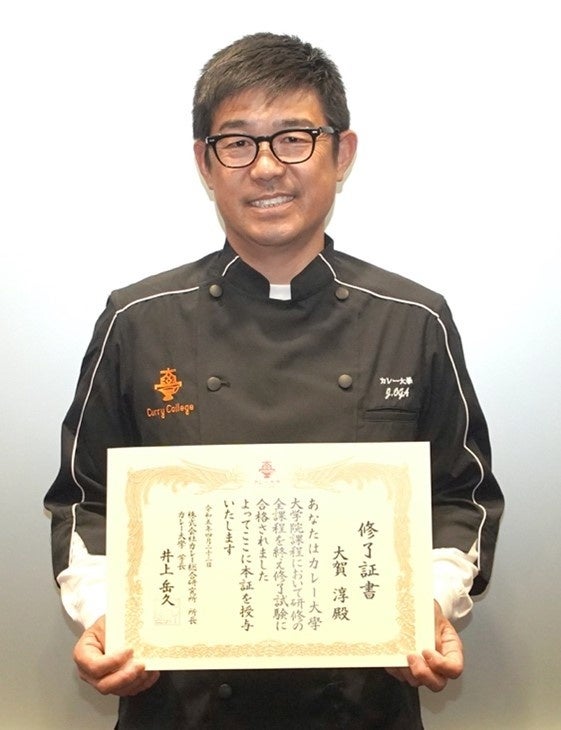 Curry College
カレー大學
J.OGA
修了証書
大賀 淳殿
あなたはカレー大學
大学院課程において研修の
全課程を終え修了試験に
合格されました
よってここに本証を授与
いたします
令和五年四月二十二日
株式会社カレー総合研究所 所長
カレー大學 学長
井上岳久